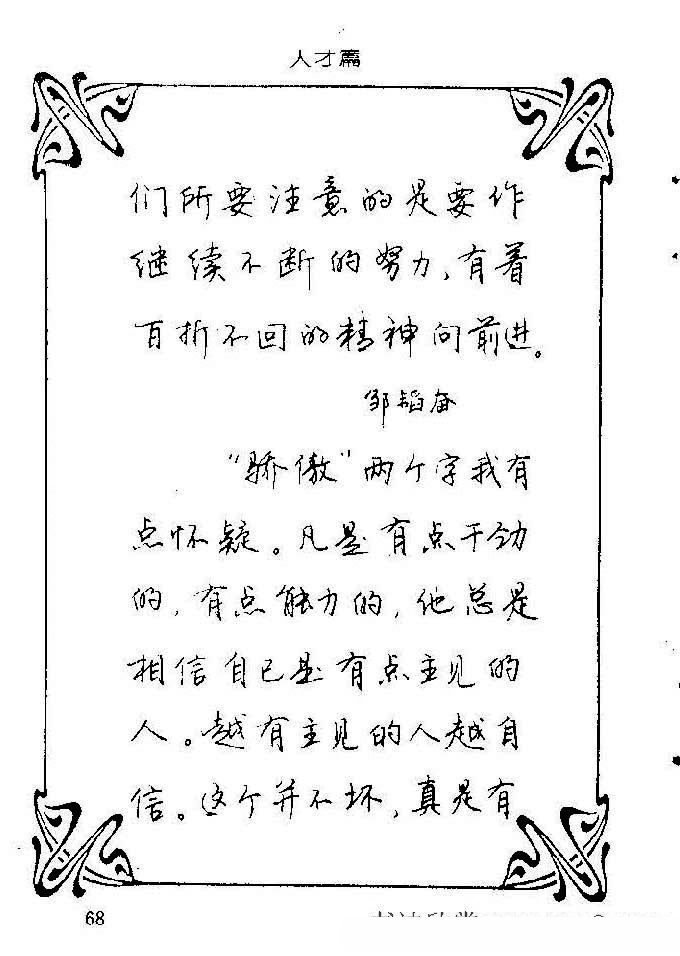 人才篇
们所要注意的是要作
继续不断的努力，有着
百折不回的精神向前进。
邹韬奋
“骄傲”两个字我有
点怀疑。凡是有点干劲
的，有点能力的，他总是
相信自己是有点主见的
人。越有主见的人越自
信。这个并不坏，真是有
68